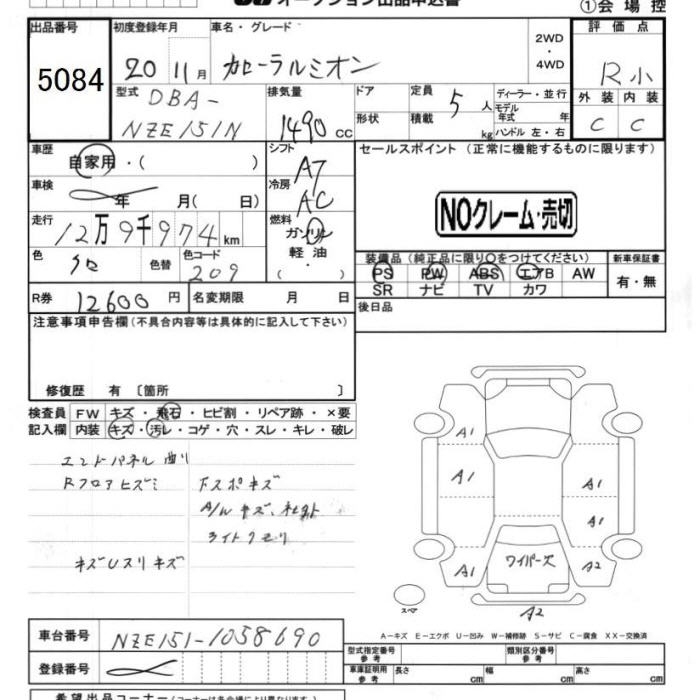 オークション出品申込書
①会場控
出品番号
5084
初度登録年月
20 11月
車名・グレード
カローラルミオン
2WD
・
4WD
評価点
R小
外装 内装
C C
型式
DBA-
NZE151N
排気量
1490 cc
ドア
形状
定員 5 人
積載 kg
ディーラー・並行
モデル
年式 年
ハンドル 左・右
車歴
自家用・( )
車検
年 月( 日)
走行
12万9千974km
色
クロ
色替
色コード
209
シフト
AT
冷房
AC
燃料
ガソリン
軽油
( )
セールスポイント (正常に機能するものに限ります)
NOクレーム・売切
装備品(純正品に限り○をつけてください)
新車保証書
PS PW ABS エアB AW
SR ナビ TV カワ
有・無
R券 12600 円
名変期限 月 日
後日品
注意事項申告欄(不具合内容等は具体的に記入して下さい)
修復歴 有 〔箇所 〕
検査員
記入欄
FW キズ・飛石・ヒビ割・リペア跡・×要
内装 キズ・汚レ・コゲ・穴・スレ・キレ・破レ
エンドパネル曲り
Rフロアヒズミ
下スポキズ
A/Wキズ、社外
ライトクモリ
キズUスリキズ
A1
A1
A1
A1
A1
A2
ワイパー欠
スペア
A2
A-キズ E-エクボ U-凹み W-補修跡 S-サビ C-腐食 XX-交換済
車台番号
NZE151-1058690
登録番号
型式指定番号
参考
類別区分番号
参考
車庫証明用
参考
長さ cm
幅 cm
高さ cm
希望出品コーナー(コーナーは各会場により異なります)